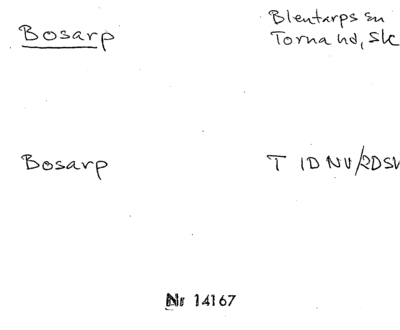 Bosarp
Blentarps sn
Torna hd, Sk
Bosarp
T 1D NV/2DSV
Nr 14167